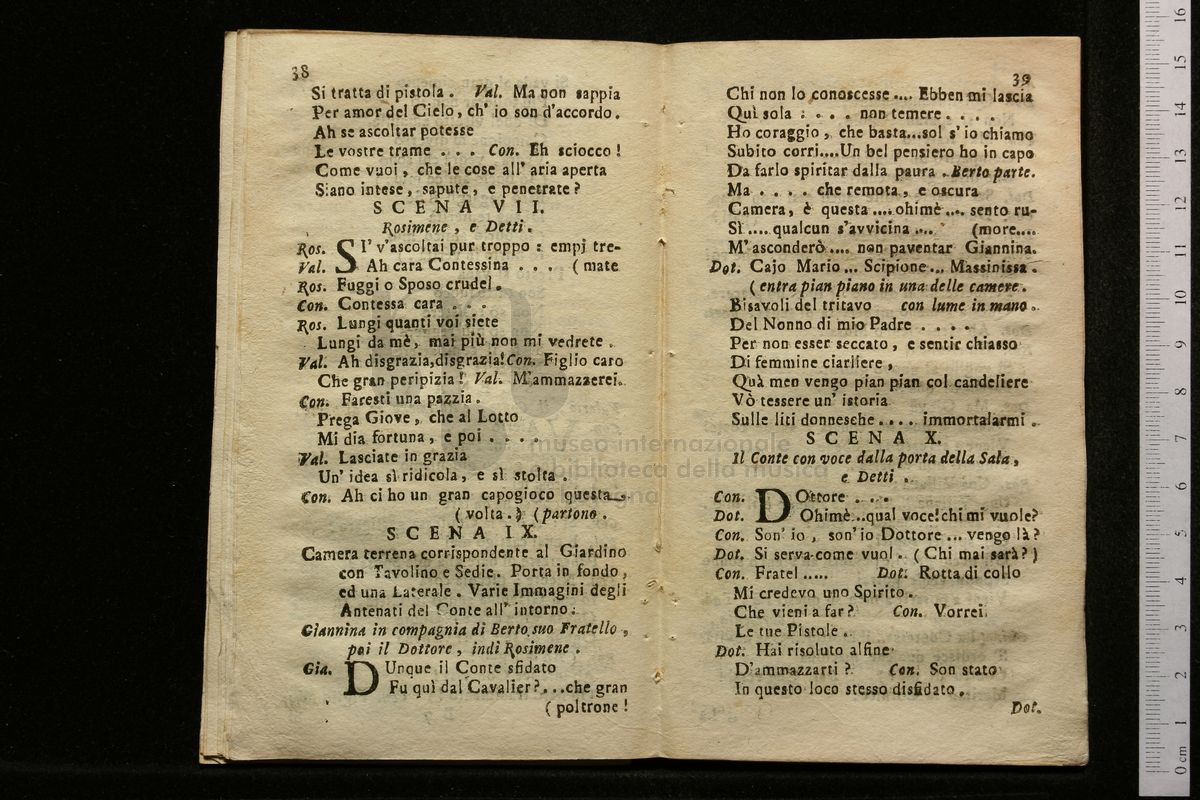 38
Si tratta di pistola . Val. Ma non sappia
Per amor del Cielo, ch' io son d'accordo.
Ah se ascoltar potesse
Le vostre trame . . . Con. Eh sciocco !
Come vuoi, che le cose all' aria aperta
Siano intese, sapute, e penetrate ?
SCENA VII.
Rosimene, e Detti.
Ros. SI' v'ascoltai pur troppo : empj tre-
Val. Ah cara Contessina . . . ( mate
Ros. Fuggi o Sposo crudel.
Con. Contessa cara . . .
Ros. Lungi quanti voi siete
Lungi da mè, mai più non mi vedrete .
Val. Ah disgrazia, disgrazia! Con. Figlio caro
Che gran peripizia ! Val. M'ammazzerei.
Con. Faresti una pazzia .
Prega Giove, che al Lotto
Mi dia fortuna, e poi . . . .
Val. Lasciate in grazia
Un' idea sì ridicola, e sì stolta .
Con. Ah ci ho un gran capogioco questa
( volta . ) ( partono .
SCENA IX.
Camera terrena corrispondente al Giardino
con Tavolino e Sedie. Porta in fondo,
ed una Laterale . Varie Immagini degli
Antenati del Conte all' intorno :
Giannina in compagnia di Berto suo Fratello,
poi il Dottore, indi Rosimene .
Gia. DUnque il Conte sfidato
Fu quì dal Cavalier ? ...che gran
( poltrone !
39
Chi non lo conoscesse .... Ebben mi lascia
Quì sola : . . . non temere . . . .
Ho coraggio, che basta...sol s' io chiamo
Subito corri....Un bel pensiero ho in capo
Da farlo spiritar dalla paura . Berto parte.
Ma . . . . che remota, e oscura
Camera, è questa .... ohimè .... sento ru-
Sì .... qualcun s'avvicina .... (more....
M' asconderò .... non paventar Giannina.
Dot. Cajo Mario ... Scipione ... Massinissa .
( entra pian piano in una delle camere .
Bisavoli del tritavo con lume in mano .
Del Nonno di mio Padre . . . .
Per non esser seccato, e sentir chiasso
Di femmine ciarliere,
Quà men vengo pian pian col candeliere
Vò tessere un' istoria
Sulle liti donnesche .... immortalarmi .
SCENA X.
Il Conte con voce dalla porta della Sala,
e Detti .
Con. DOttore . . . .
Dot. Ohimè...qual voce! chi mi vuole?
Con. Son' io, son' io Dottore ... vengo là ?
Dot. Si serva come vuol . ( Chi mai sarà ? )
Con. Fratel ..... Dot. Rotta di collo
Mi credevo uno Spirito .
Che vieni a far ? Con. Vorrei
Le tue Pistole .
Dot. Hai risoluto alfine
D'ammazzarti ? Con. Son stato
In questo loco stesso disfidato .
Dot.
museo internazionale
biblioteca della musica
0 cm 1 2 3 4 5 6 7 8 9 10 11 12 13 14 15 16